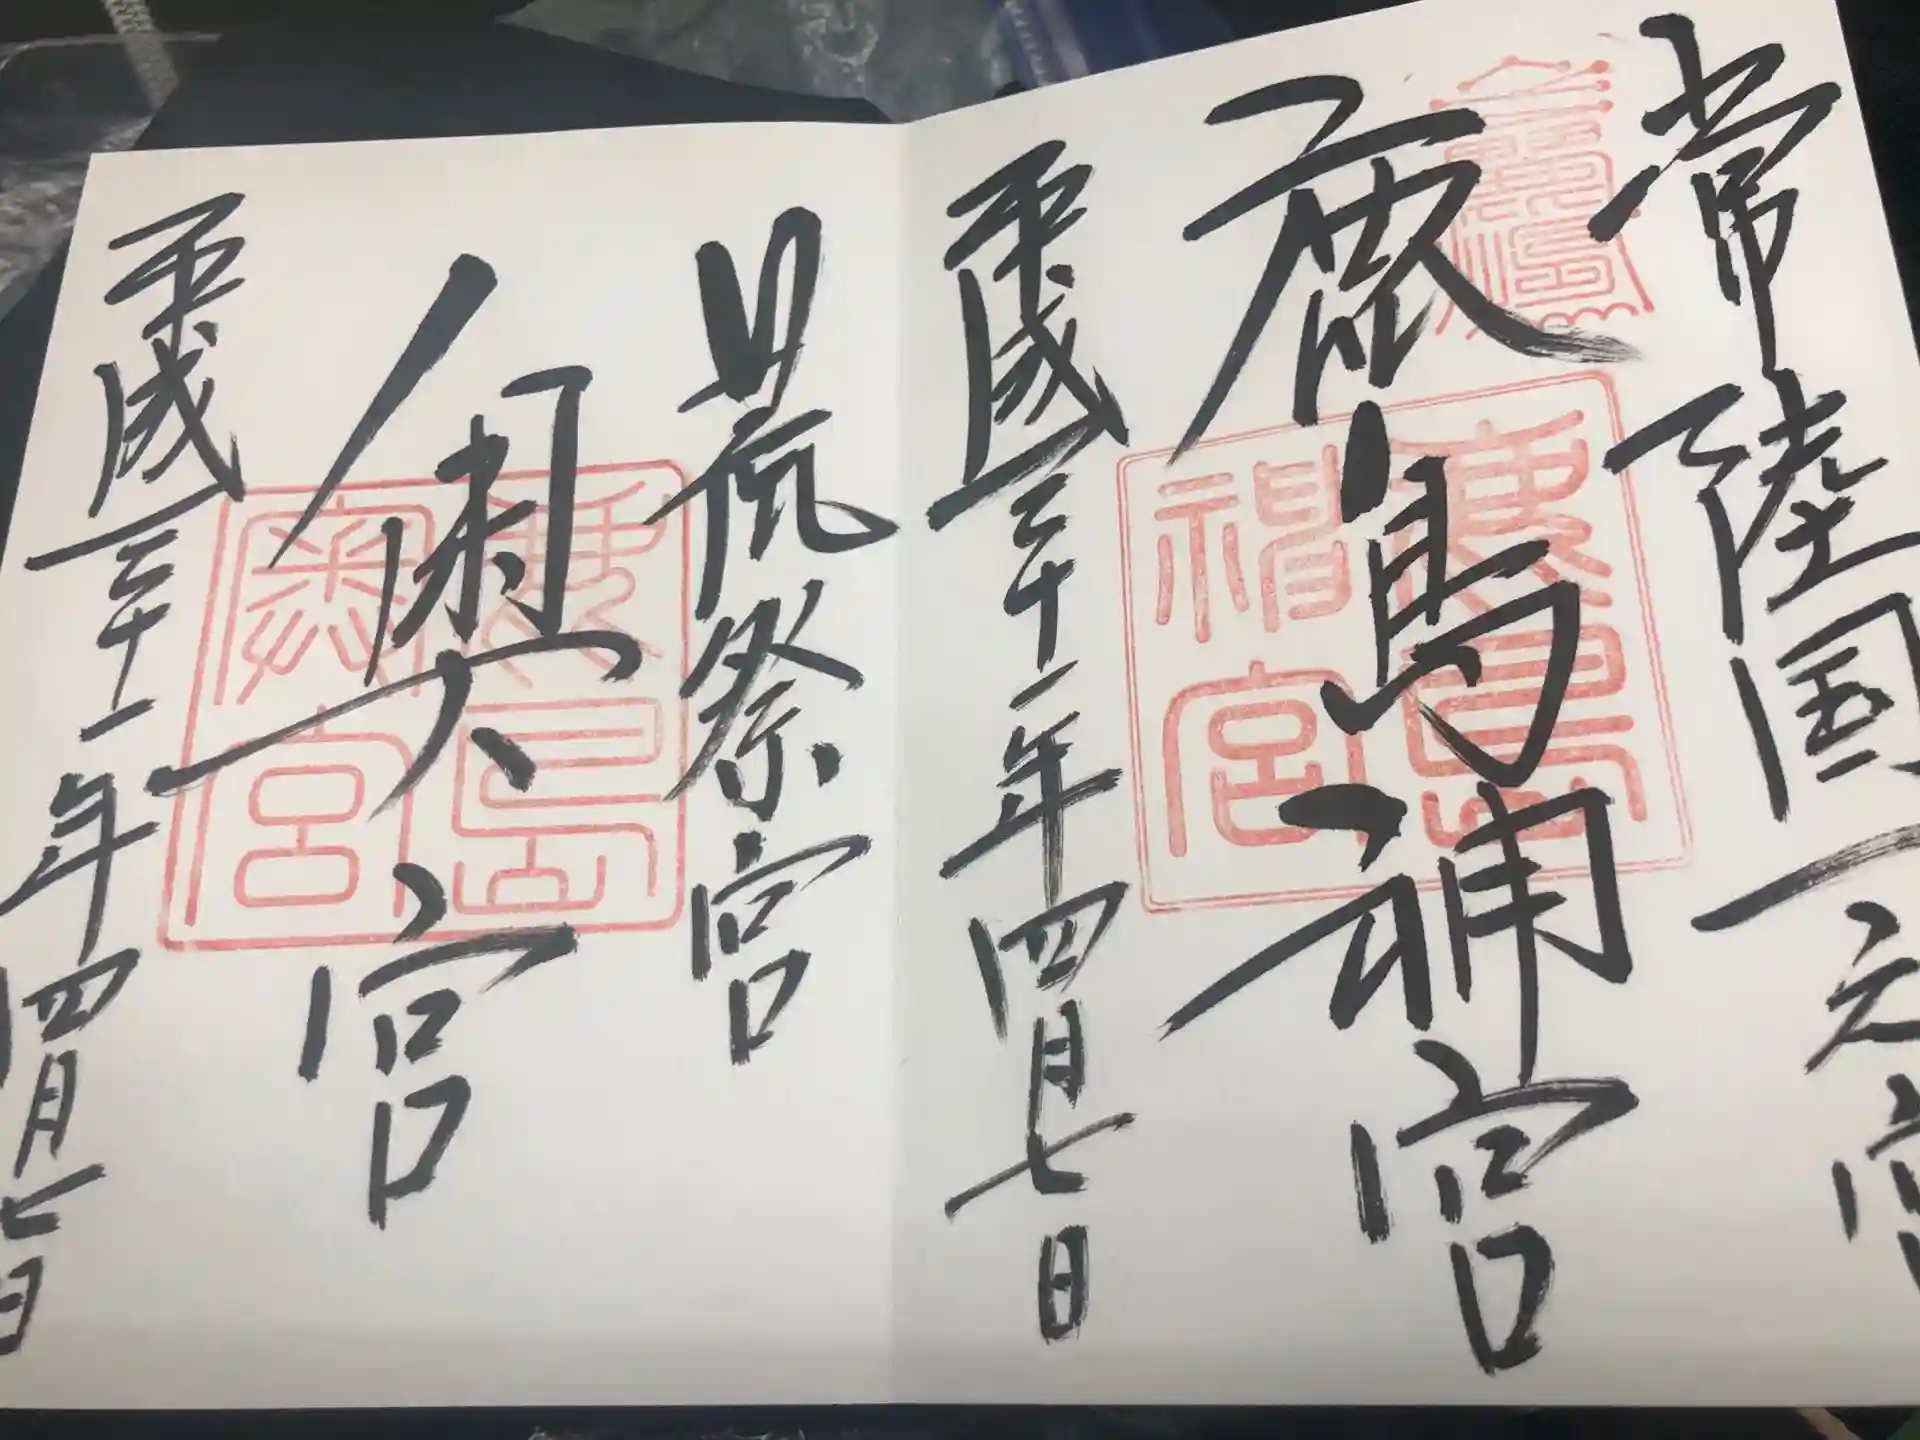 常陸国一元宮
鹿島神宮
平成三十一年四月七日
荒祭宮
奥宮
平成三十一年四月七日
鹿島神宮
鹿島奥宮